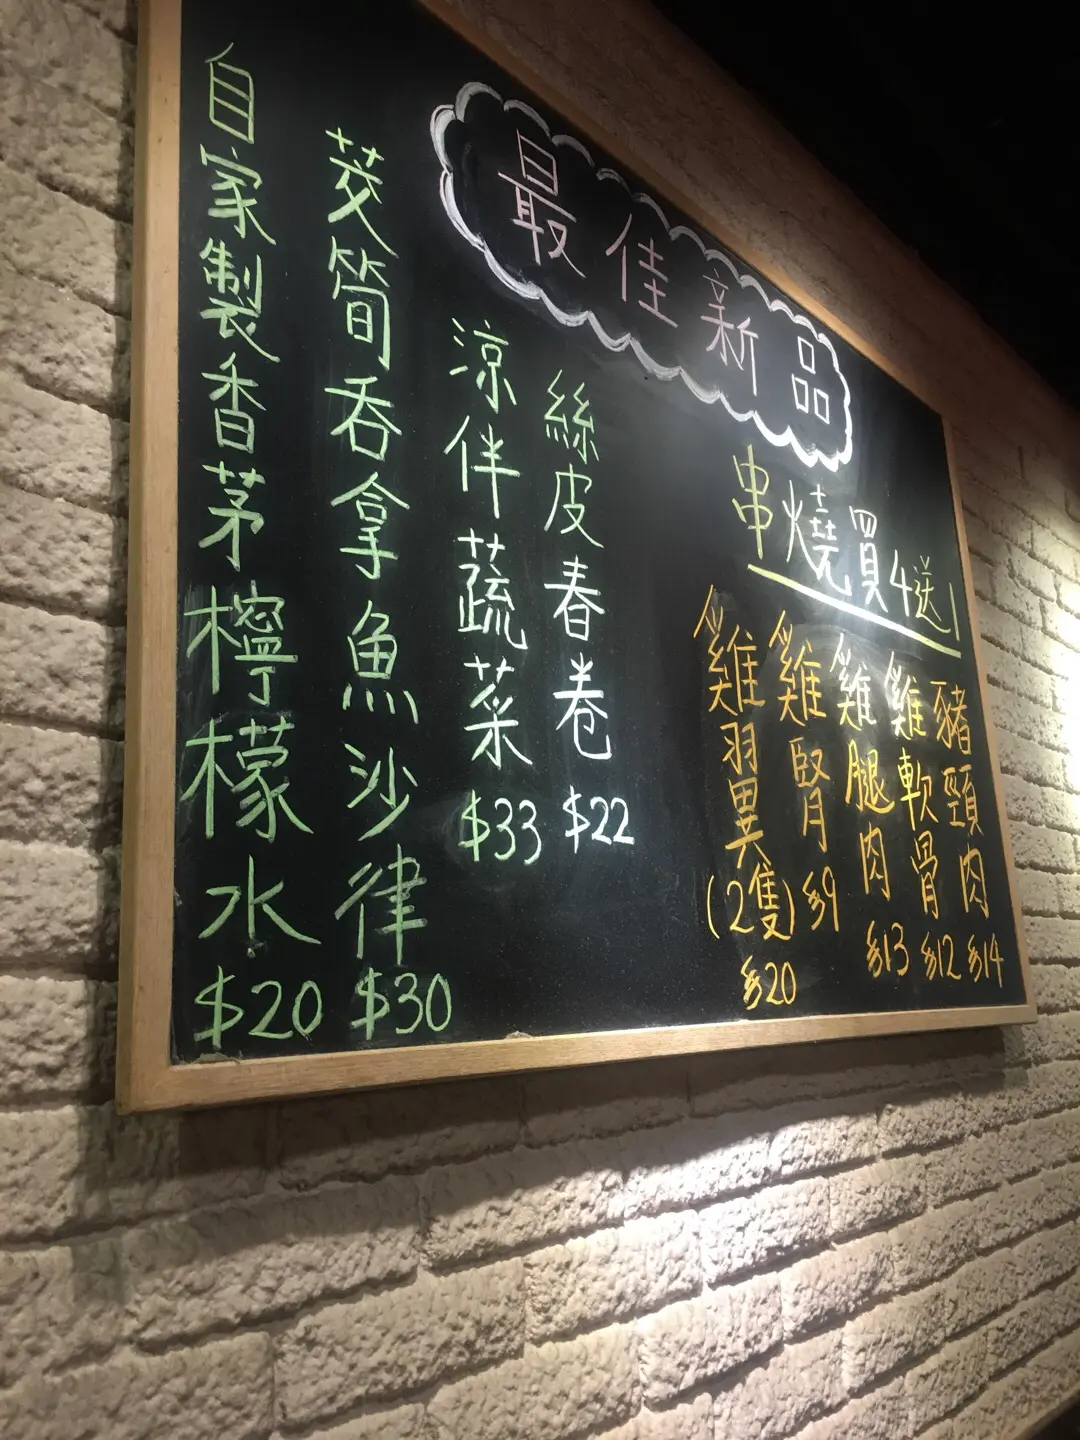 最佳新品
串燒買4送1
豬頸肉 $14
雞軟骨 $12
雞腿肉 $13
雞腎 $9
雞翼(2隻) $20
絲皮春卷 $22
涼伴蔬菜 $33
茭筍吞拿魚沙律 $30
自家製香茅檸檬水 $20